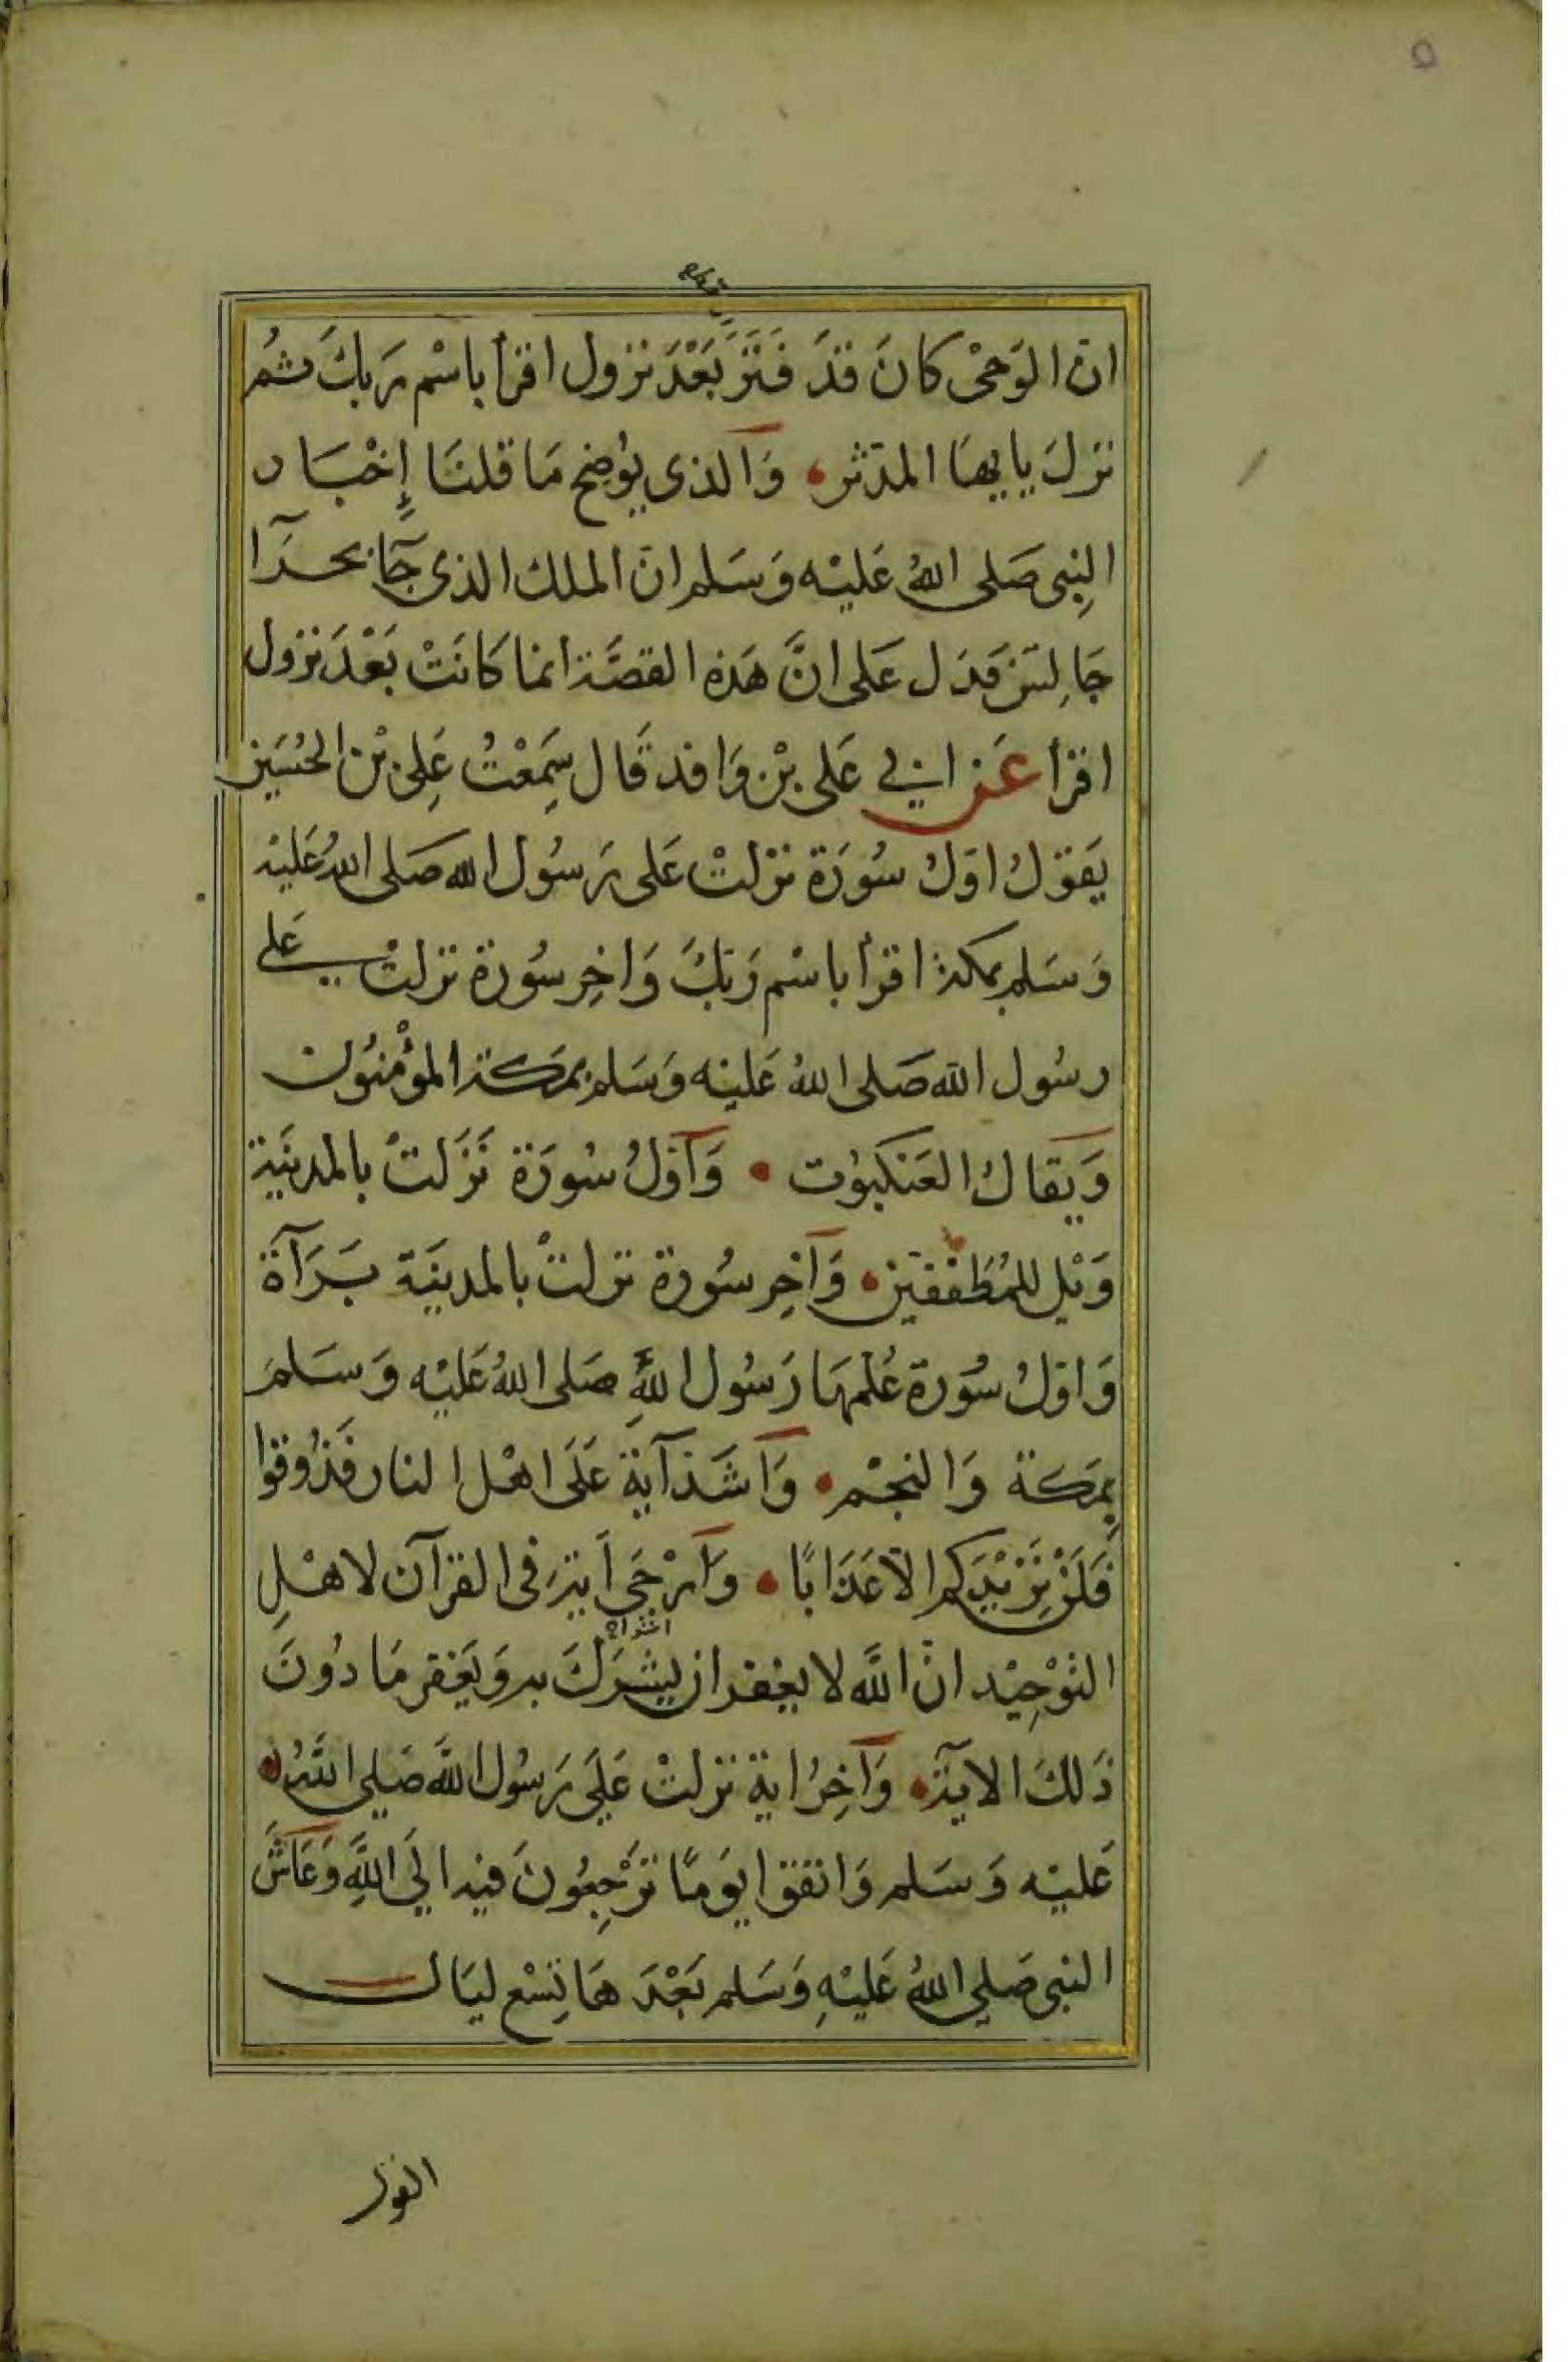 ٥
ان الوَحْى كانَ قدَ فَتَرَ بَعْدَ نزول اقرأ باسْم رَبكَ ثم
نزلَ يايهَا المدثر وَالذى يوُضِح مَا قلنَا إِخْبَار
النِبى صَلى اللهُ عَليْه وَسَلم انَ الملك الذى جَآ بحرَآ
جَالِسَ فدَل عَلى انَّ هَذه القصَّة انما كَانَتْ بَعْدَ نزول
اقرَأ عَن ابي عَلى بْن وَافد قَال سَمِعْتُ عَلِى بْن الحُسَين
يَقوَلُ اوَلُ سُورَة نزلتْ عَلى رَسُول الله صَلى اللهُ عَليْه
وَسَلم بمكة اقرَأ باسْم رَبكَ وَاخِر سُورَة نزلتْ عَلى
رسُول الله صَلى اللهُ عَليْه وَسَلم بمَكة المؤْمنُون
وَيقَالُ العَنكبوُت وَأوَلُ سُورَة نَزَلتْ بالمدينَة
وَيْل للمُطَففين وَآخِر سُورَة نزلتْ بالمدينَة بَرَآة
وَاوَلُ سُورَة عُلمهَا رَسُول اللهِ صَلى اللهُ عَليْه وَسَلمَ
بِمَكة وَالنجْم وَأشَد آيَة عَلَى اهْل النار فَذُوقوا
فَلَنْ نِزَيْدَكم الاعَذَابًا وَأرْجَى أيَة فى القرآن لاهْلِ
التوْحِيْد انَ اللَّه لا يغفر ان يشْرَكَ به وَيَغفر مَا دُونَ
اشراك
ذَلكَ الايَة وَآخِرُ ايَة نزلتْ عَلَى رَسُول اللَّه صَلى اللهُ
عَليْه وَسَلم وَاتقوا يوَمًا ترْجِعُونَ فيه الَى اللَّهِ وَعَاشَ
النبى صَلى اللهُ عَليْهِ وَسَلم بَعْدَ هَا تِسْع ليَال
القول